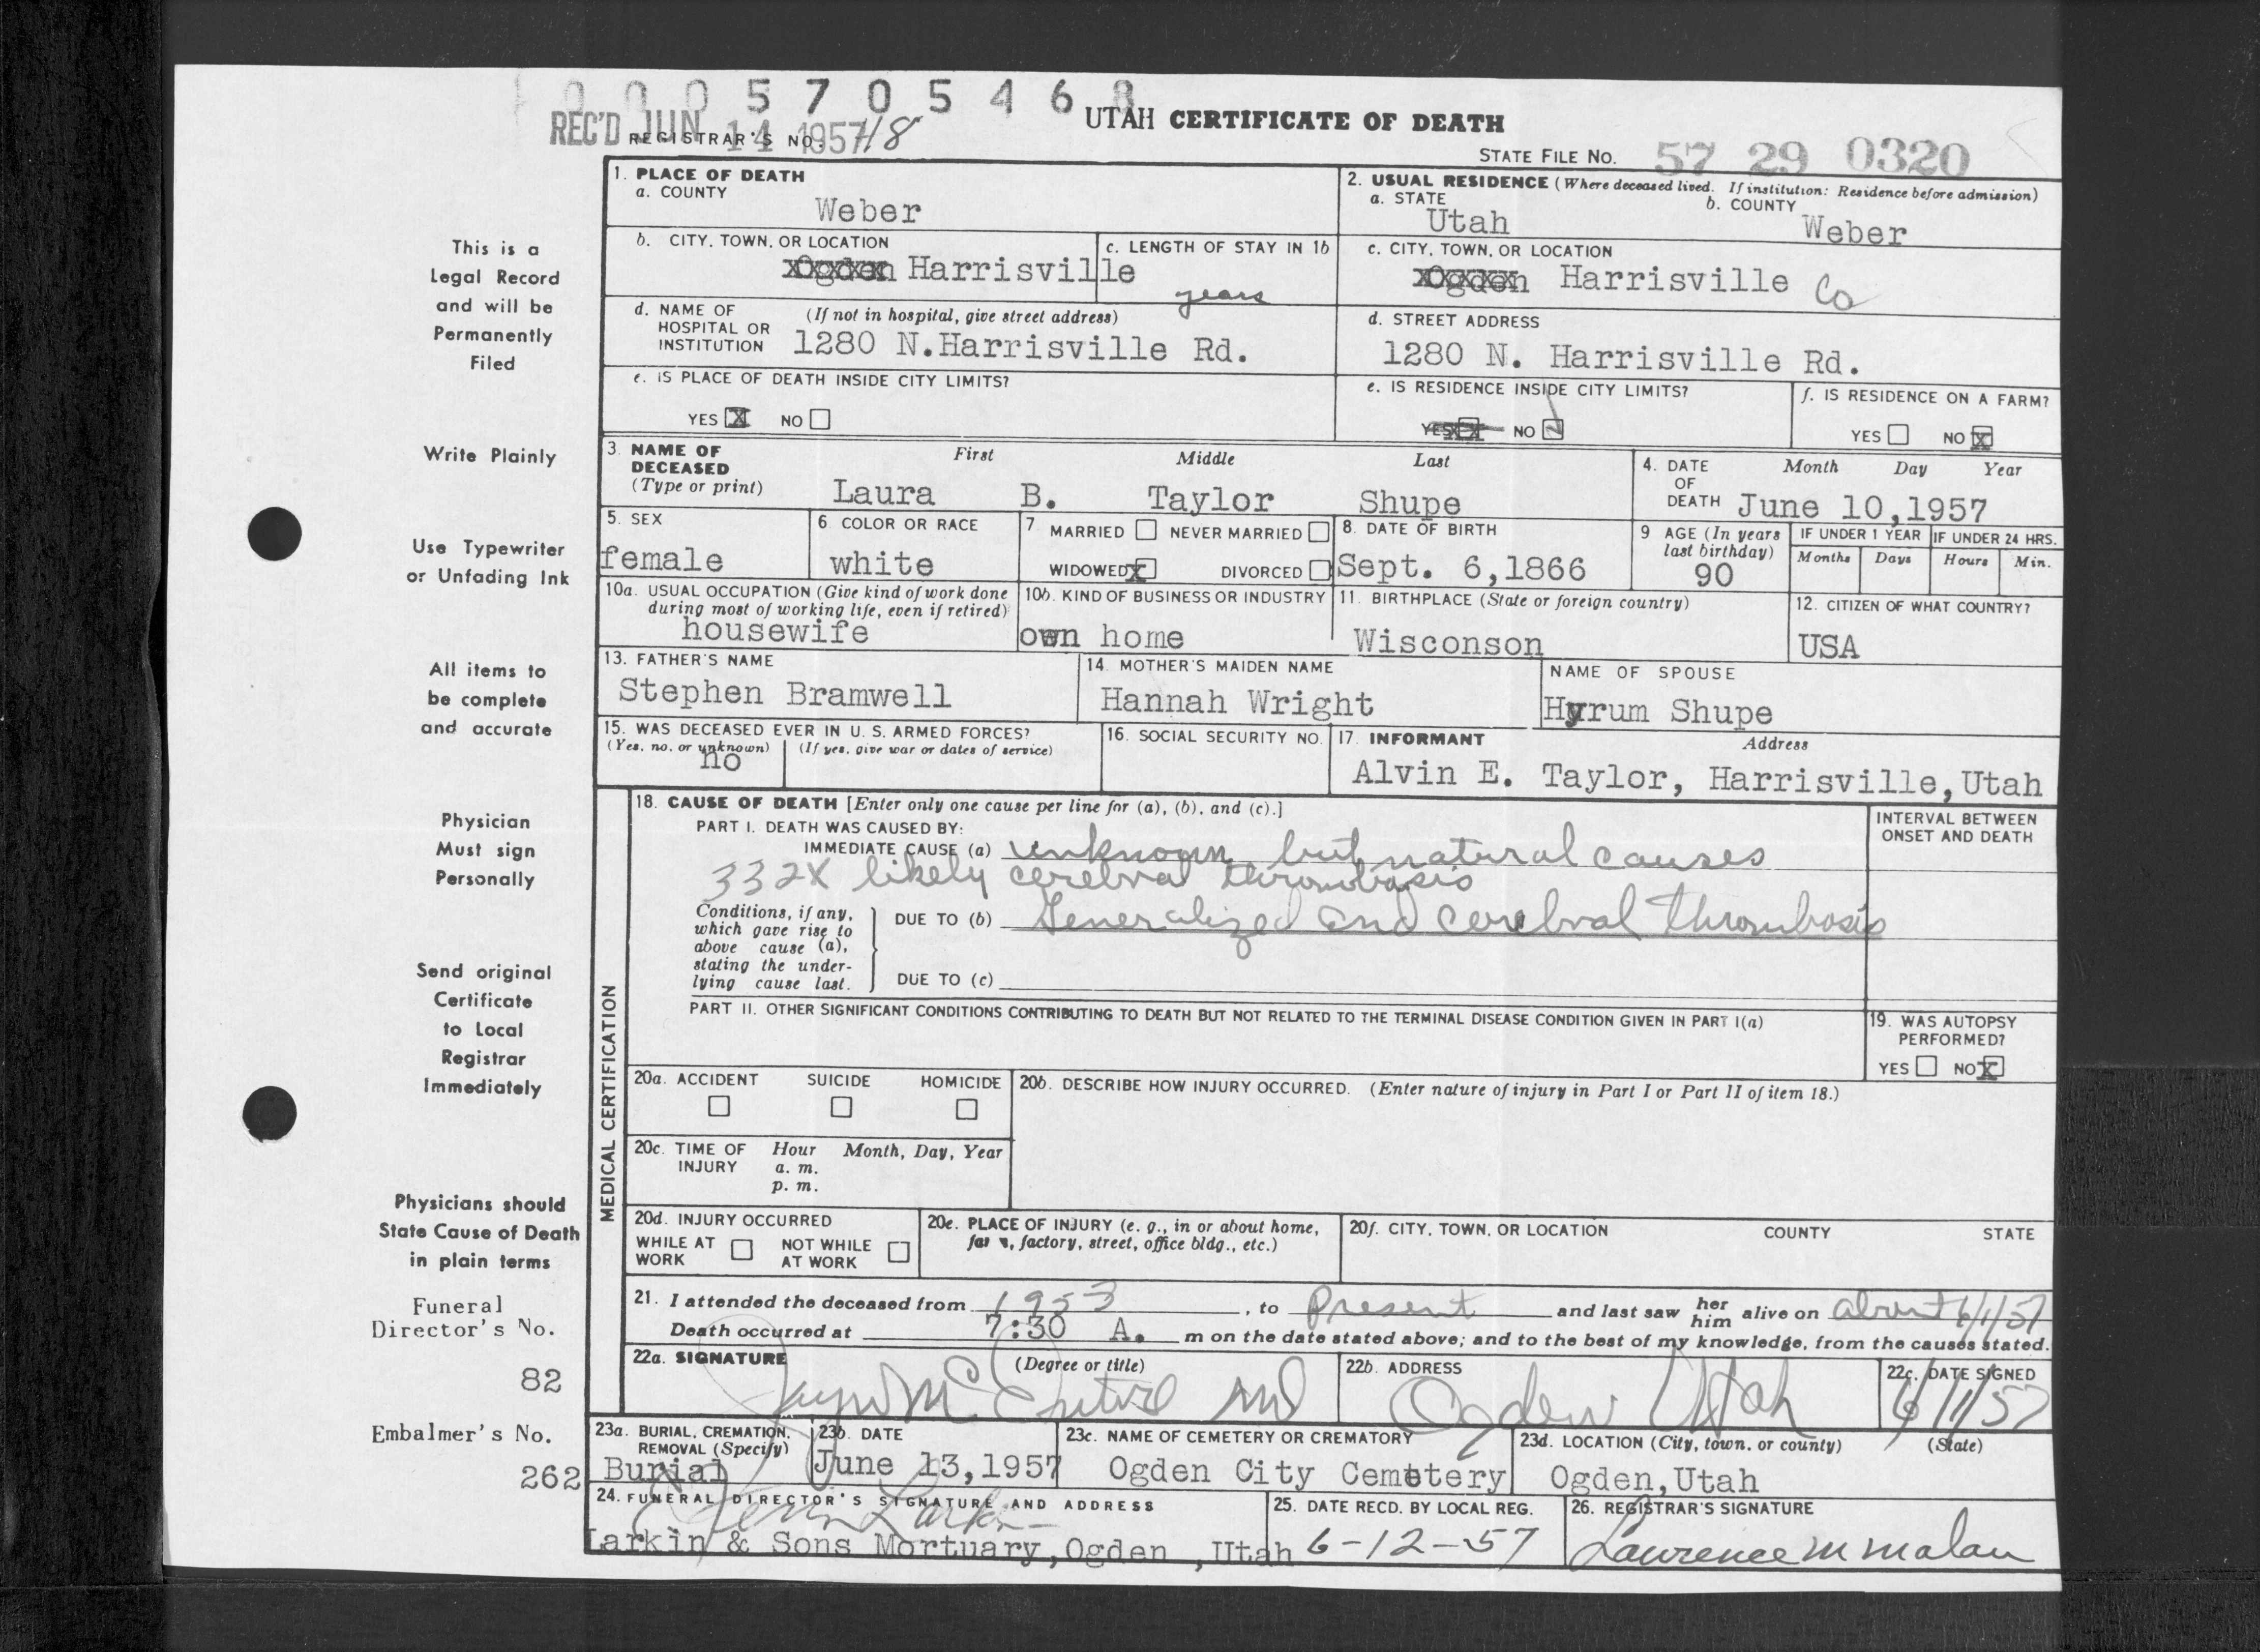 0 0 0 5 7 0 5 4 6 8
REC'D JUN 14 1957
REGISTRAR'S NO. 418
UTAH CERTIFICATE OF DEATH
STATE FILE NO. 57 29 0320
1. PLACE OF DEATH
a. COUNTY
Weber
2. USUAL RESIDENCE (Where deceased lived. If institution: Residence before admission)
a. STATE
Utah
b. COUNTY
Weber
b. CITY, TOWN, OR LOCATION
Ogden Harrisville
c. LENGTH OF STAY IN 1b
years
c. CITY, TOWN, OR LOCATION
Ogden Harrisville Co
d. NAME OF HOSPITAL OR INSTITUTION
(If not in hospital, give street address)
1280 N.Harrisville Rd.
d. STREET ADDRESS
1280 N. Harrisville Rd.
e. IS PLACE OF DEATH INSIDE CITY LIMITS?
YES X NO
e. IS RESIDENCE INSIDE CITY LIMITS?
YES X NO ✓
f. IS RESIDENCE ON A FARM?
YES NO X
3. NAME OF DECEASED
(Type or print)
First Middle Last
Laura B. Taylor Shupe
4. DATE OF DEATH
Month Day Year
June 10,1957
5. SEX
female
6 COLOR OR RACE
white
7 MARRIED NEVER MARRIED
WIDOWED X DIVORCED
8. DATE OF BIRTH
Sept. 6,1866
9 AGE (In years last birthday)
90
IF UNDER 1 YEAR
Months Days
IF UNDER 24 HRS.
Hours Min.
10a. USUAL OCCUPATION (Give kind of work done during most of working life, even if retired)
housewife
10b. KIND OF BUSINESS OR INDUSTRY
own home
11. BIRTHPLACE (State or foreign country)
Wisconson
12. CITIZEN OF WHAT COUNTRY?
USA
13. FATHER'S NAME
Stephen Bramwell
14. MOTHER'S MAIDEN NAME
Hannah Wright
NAME OF SPOUSE
Hyrum Shupe
15. WAS DECEASED EVER IN U. S. ARMED FORCES?
(Yes, no, or unknown) (If yes, give war or dates of service)
no
16. SOCIAL SECURITY NO.
17. INFORMANT Address
Alvin E. Taylor, Harrisville,Utah
MEDICAL CERTIFICATION
18. CAUSE OF DEATH [Enter only one cause per line for (a), (b), and (c).]
INTERVAL BETWEEN ONSET AND DEATH
PART I. DEATH WAS CAUSED BY:
IMMEDIATE CAUSE (a) unknown but natural causes
332X likely cerebral thrombosis
Conditions, if any, which gave rise to above cause (a), stating the underlying cause last.
DUE TO (b) Generalized and cerebral thrombosis
DUE TO (c)
PART II. OTHER SIGNIFICANT CONDITIONS CONTRIBUTING TO DEATH BUT NOT RELATED TO THE TERMINAL DISEASE CONDITION GIVEN IN PART I(a)
19. WAS AUTOPSY PERFORMED?
YES NO X
20a. ACCIDENT SUICIDE HOMICIDE
20b. DESCRIBE HOW INJURY OCCURRED. (Enter nature of injury in Part I or Part II of item 18.)
20c. TIME OF INJURY Hour Month, Day, Year
a. m.
p. m.
20d. INJURY OCCURRED
WHILE AT WORK NOT WHILE AT WORK
20e. PLACE OF INJURY (e. g., in or about home, farm, factory, street, office bldg., etc.)
20f. CITY, TOWN, OR LOCATION COUNTY STATE
21. I attended the deceased from 1953, to Present and last saw her him alive on about 6/1/57
Death occurred at 7:30 A. m on the date stated above; and to the best of my knowledge, from the causes stated.
22a. SIGNATURE (Degree or title)
MD
22b. ADDRESS
Ogden Utah
22c. DATE SIGNED
6/11/57
23a. BURIAL, CREMATION, REMOVAL (Specify)
Burial
23b. DATE
June 13,1957
23c. NAME OF CEMETERY OR CREMATORY
Ogden City Cemetery
23d. LOCATION (City, town, or county) (State)
Ogden,Utah
24. FUNERAL DIRECTOR'S SIGNATURE AND ADDRESS
Larkin
Larkin & Sons Mortuary,Ogden ,Utah
25. DATE RECD. BY LOCAL REG.
6-12-57
26. REGISTRAR'S SIGNATURE
Lawrence M Malan
This is a
Legal Record
and will be
Permanently
Filed
Write Plainly
Use Typewriter
or Unfading Ink
All items to
be complete
and accurate
Physician
Must sign
Personally
Send original
Certificate
to Local
Registrar
Immediately
Physicians should
State Cause of Death
in plain terms
Funeral
Director's No.
82
Embalmer's No.
262